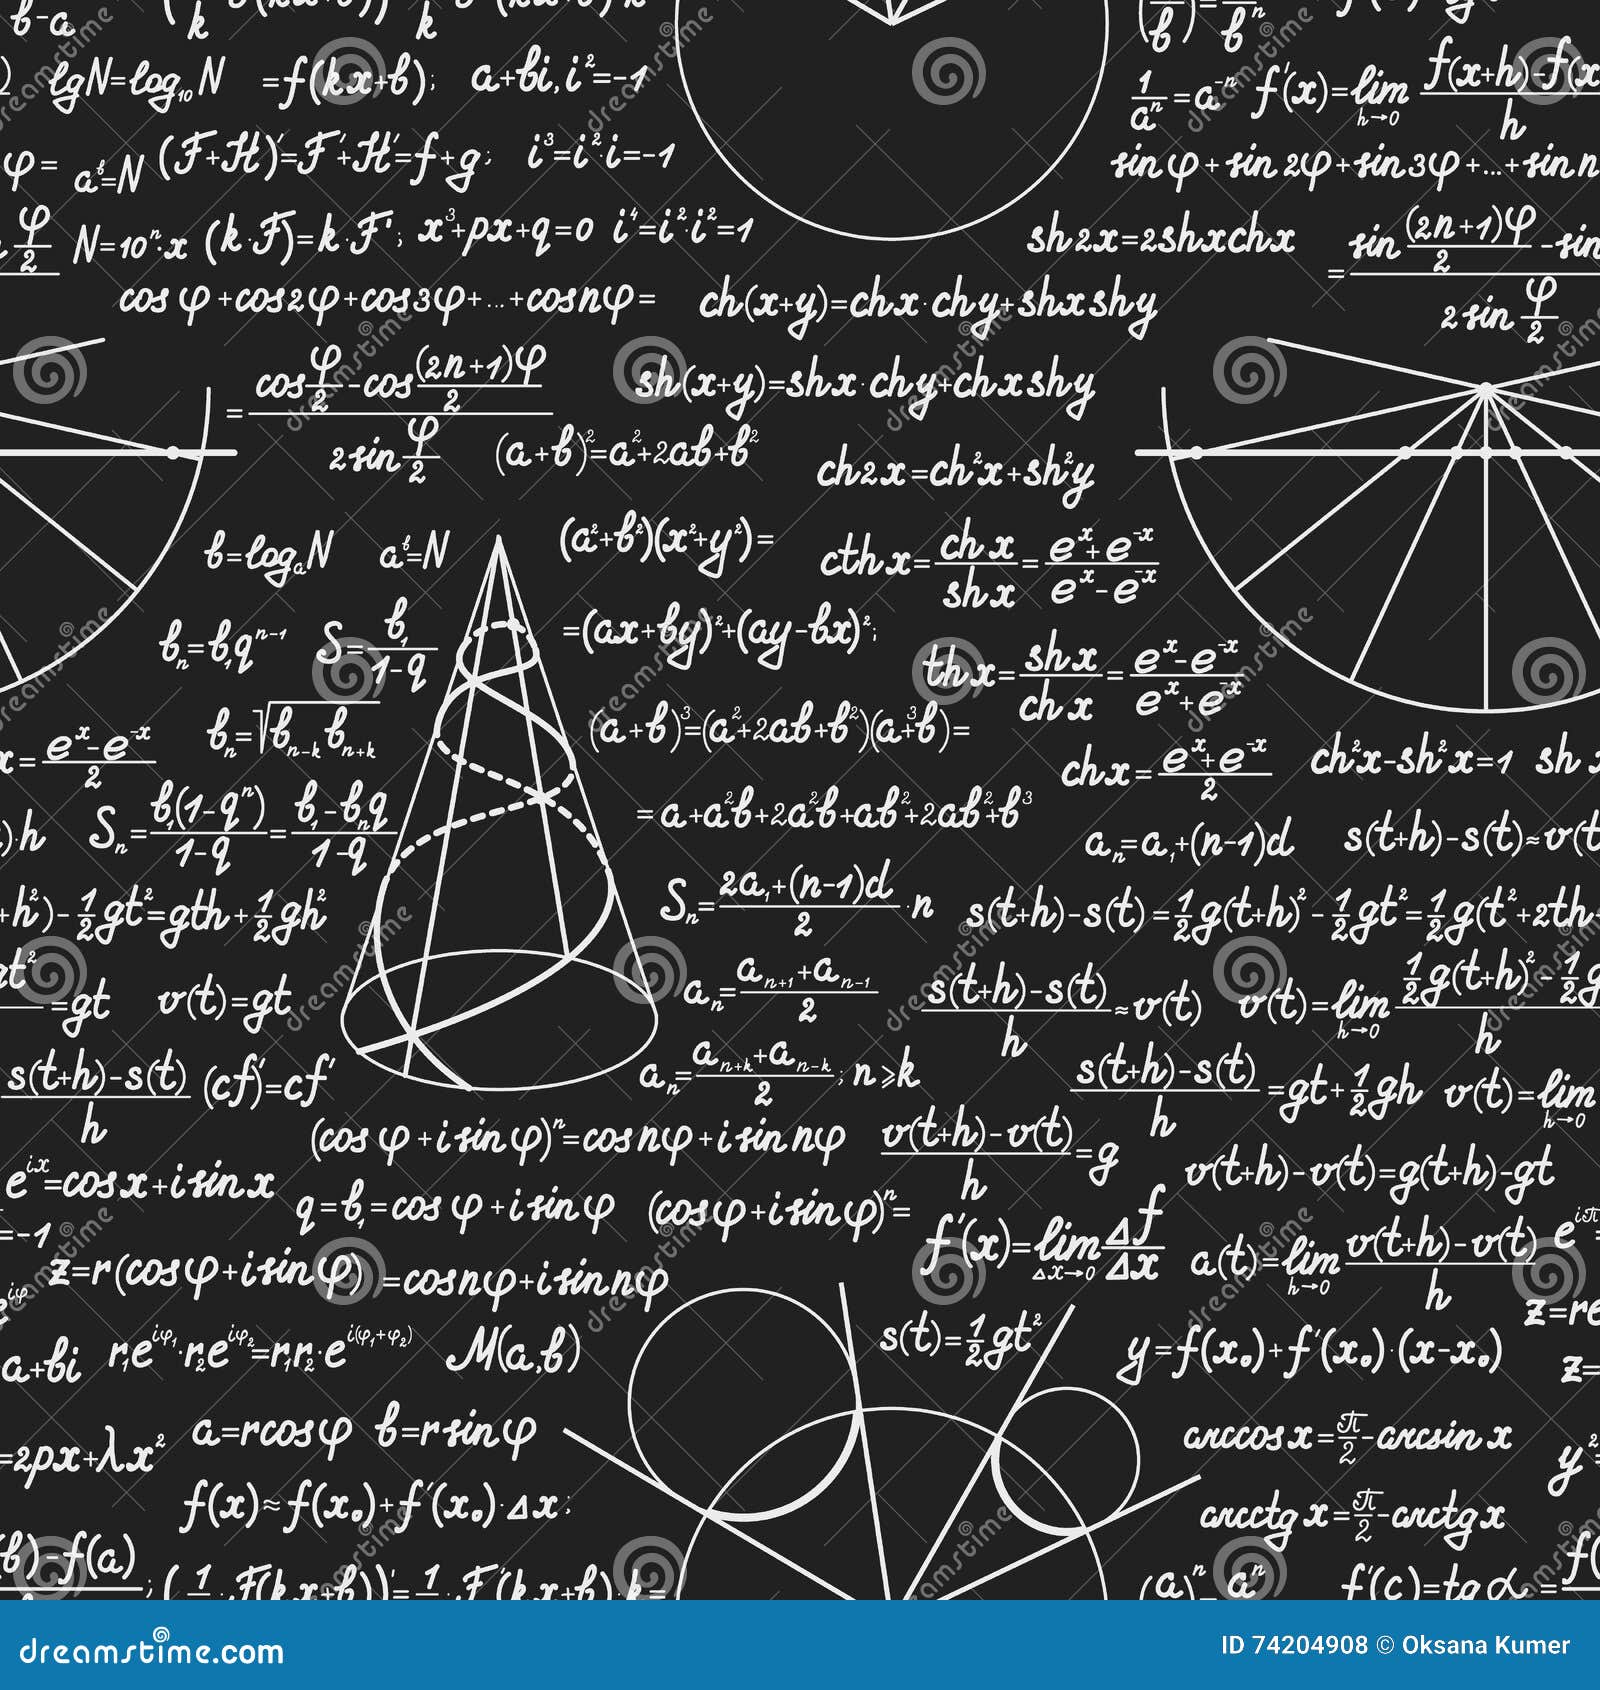 lgN=log₁₀N =f(kx+b); a+bi, i²=-1
1/aⁿ=a⁻ⁿ f'(x)=lim h→0 f(x+h)-f(x / h
φ= aᵇ=N (F+H)'=F'+H'=f+g; i³=i²·i=-1
sinφ+sin2φ+sin3φ+...+sin n
φ/2 N=10ⁿ·x (k·F)'=k·F'; x³+px+q=0 i⁴=i²·i²=1
sh2x=2shxchx = sin (2n+1)φ/2 -sin / 2sin φ/2
cosφ+cos2φ+cos3φ+...+cosnφ= ch(x+y)=chx·chy+shxshy
= cos φ/2 -cos (2n+1)φ/2 / 2sin φ/2 sh(x+y)=shx·chy+chxshy
(a+b)²=a²+2ab+b² ch2x=ch²x+sh²y
b=logₐN aᵇ=N (a²+b²)(x²+y²)= cthx= chx/shx = eˣ+e⁻ˣ / eˣ-e⁻ˣ
bₙ=b₁qⁿ⁻¹ S= b₁/1-q =(ax+by)²+(ay-bx)²; thx= shx/chx = eˣ-e⁻ˣ / eˣ+e⁻ˣ
x= eˣ-e⁻ˣ / 2 bₙ=√bₙ₋ₖbₙ₊ₖ (a+b)³=(a²+2ab+b²)(a³+b)= chx= eˣ+e⁻ˣ / 2 ch²x-sh²x=1 sh x
)·h Sₙ= b₁(1-qⁿ) / 1-q = b₁-bₙq / 1-q =a+a²b+2a²b+ab²+2ab²+b³ aₙ=a₁+(n-1)d s(t+h)-s(t)≈v(t
+h²)- 1/2 gt²=gth+ 1/2 gh² Sₙ= 2a₁+(n-1)d / 2 ·n s(t+h)-s(t)= 1/2 g(t+h)²- 1/2 gt²= 1/2 g(t²+2th
gt² =gt v(t)=gt aₙ= aₙ₊₁+aₙ₋₁ / 2 s(t+h)-s(t) / h ≈v(t) v(t)=lim h→0 1/2 g(t+h)²- 1/2 g / h
s(t+h)-s(t) / h (cf)'=cf' aₙ= aₙ₊ₖ+aₙ₋ₖ / 2 ; n⩾k s(t+h)-s(t) / h =gt+ 1/2 gh v(t)=lim h→0
(cosφ+isinφ)ⁿ=cosnφ+isinnφ v(t+h)-v(t) / h =g v(t+h)-v(t)=g(t+h)-gt
eⁱˣ=cosx+isinx q=b₁=cosφ+isinφ (cosφ+isinφ)ⁿ=
=-1 f'(x)=lim Δx→0 Δf/Δx a(t)=lim h→0 v(t+h)-v(t) / h
z=r(cosφ+isinφ) =cosnφ+isinnφ
s(t)= 1/2 gt² z=re
a+bi r₁e^iφ₁·r₂e^iφ₂=r₁r₂·e^i(φ₁+φ₂) M(a,b) y=f(x₀)+f'(x₀)·(x-x₀) z=
=2px+λx² a=rcosφ b=rsinφ arccosx= π/2 -arcsinx
f(x)≈f(x₀)+f'(x₀)·Δx; arcctgx= π/2 -arctgx
b)-f(a) ; ( 1 F(kx+b))'= 1 F'(kx+b)·k= (a)ⁿ aⁿ f'(c)=tgα=
dreamstime.com ID 74204908 © Oksana Kumer